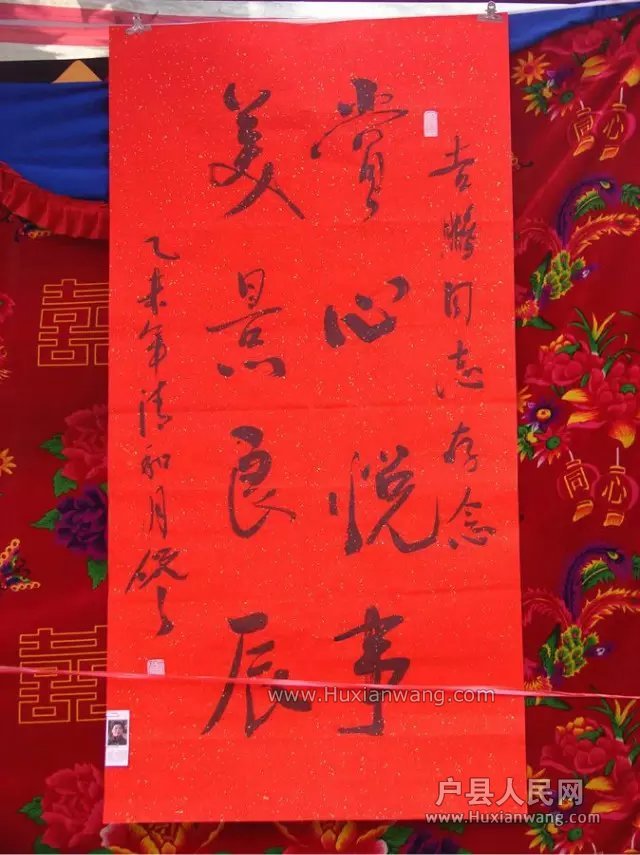 吉鹏同志存念
赏心悦事
美景良辰
乙未年清和月
同心
同心
囍
囍
www.Huxianwang.com
户县人民网
www.Huxianwang.com